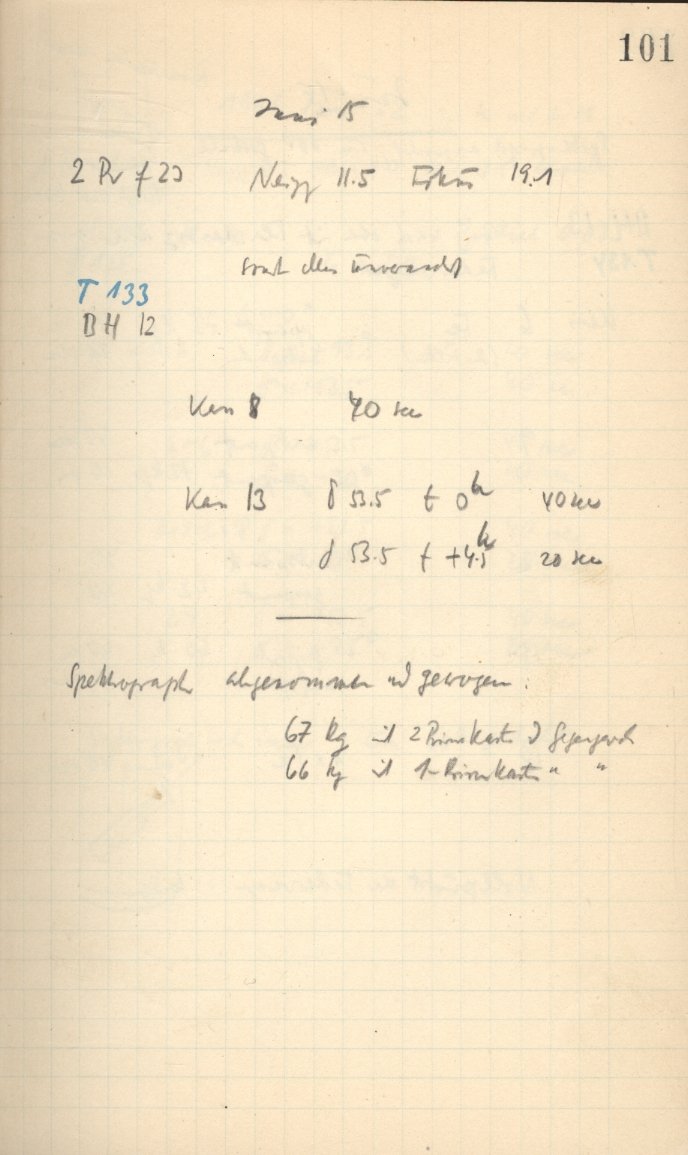 101
Juni 15
2 Pr f 23 Neigg 11.5 Fokus 19.1
sonst alles unverändert
T 133
BH 12
Kass 8 40 sec
Kass 13 δ 53.5 t 0h 40 sec
δ 53.5 t +4.5h 20 sec
Spektrograph abgenommen und gewogen:
67 kg mit 2 Prismkasten Gegengewicht
66 kg mit 1 Prismkasten " "